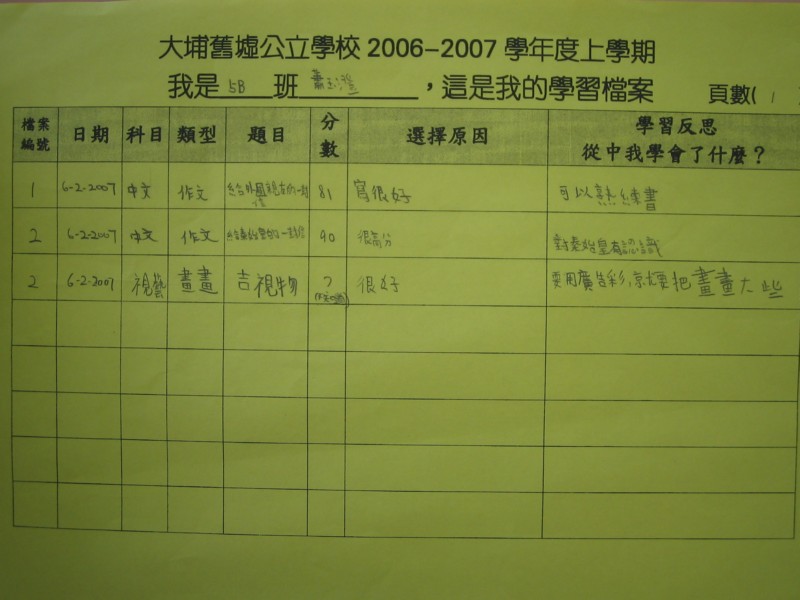 大埔舊墟公立學校 2006-2007 學年度上學期
我是 5B 班 蕭 ，這是我的學習檔案 頁數( 1
檔案編號 日期 科目 類型 題目 分數 選擇原因 學習反思 從中我學會了什麼？
1 6-2-2007 中文 作文 81 寫很好 可以熟練書
2 6-2-2007 中文 作文 給秦始皇的一封信 90 很高分 對秦始皇有認識
2 6-2-2007 視藝 畫畫 吉視物 ? 很好 要用廣告彩,就要把畫畫大些